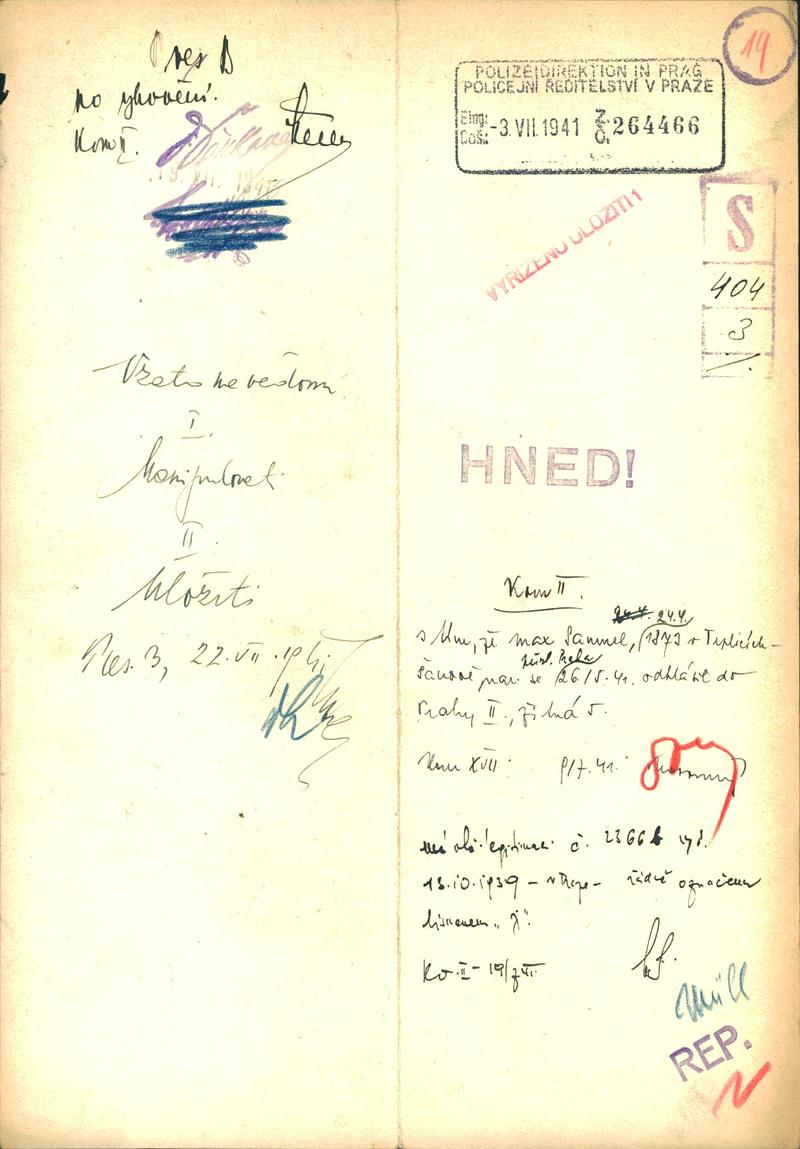 Pres B
po vyhovění.
Kom II.
Vzato na vědomí
I.
Manipulovati
II.
Uložiti
Pres. 3, 22. VII. 1941
19
POLIZEIDIREKTION IN PRAG
POLICEJNÍ ŘEDITELSTVÍ V PRAZE
Eing.: Došl.: -3. VII. 1941 Z. Č. 264466
VYŘÍZENO ULOŽITI 1
S
404
3
1.
HNED!
Kom II.
24.4.
s tím, že Max Sammel, 1873 v Teplicích-
Šanově nar. se 26/5. 41. odhlásil do
Prahy II., Žitná 5.
Kom XVII 9/7. 41.
má obč. legitimaci č. 2366 b vyd.
13.10.1939 – v Praze – řádně označenou
písmenem „J".
Ko. II – 19/VII.
Müll
REP.